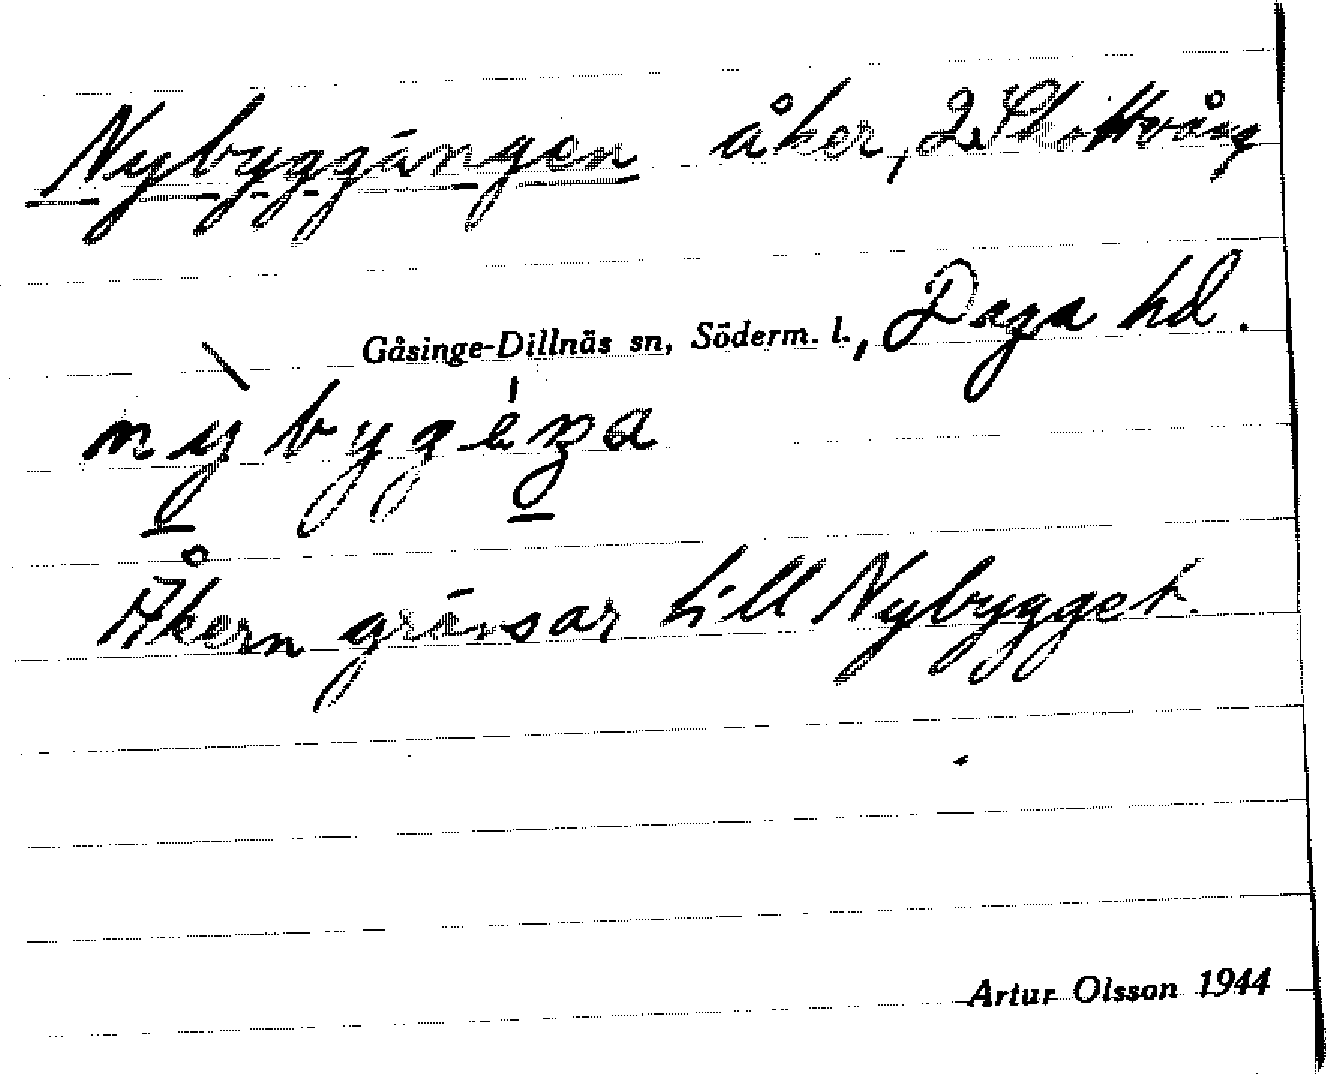 Nybyggängen åker, 2 Slottvång
Gåsinge-Dillnäs sn, Söderm. l., Daga hd.
Åkern gränsar till Nybygget.
Artur Olsson 1944